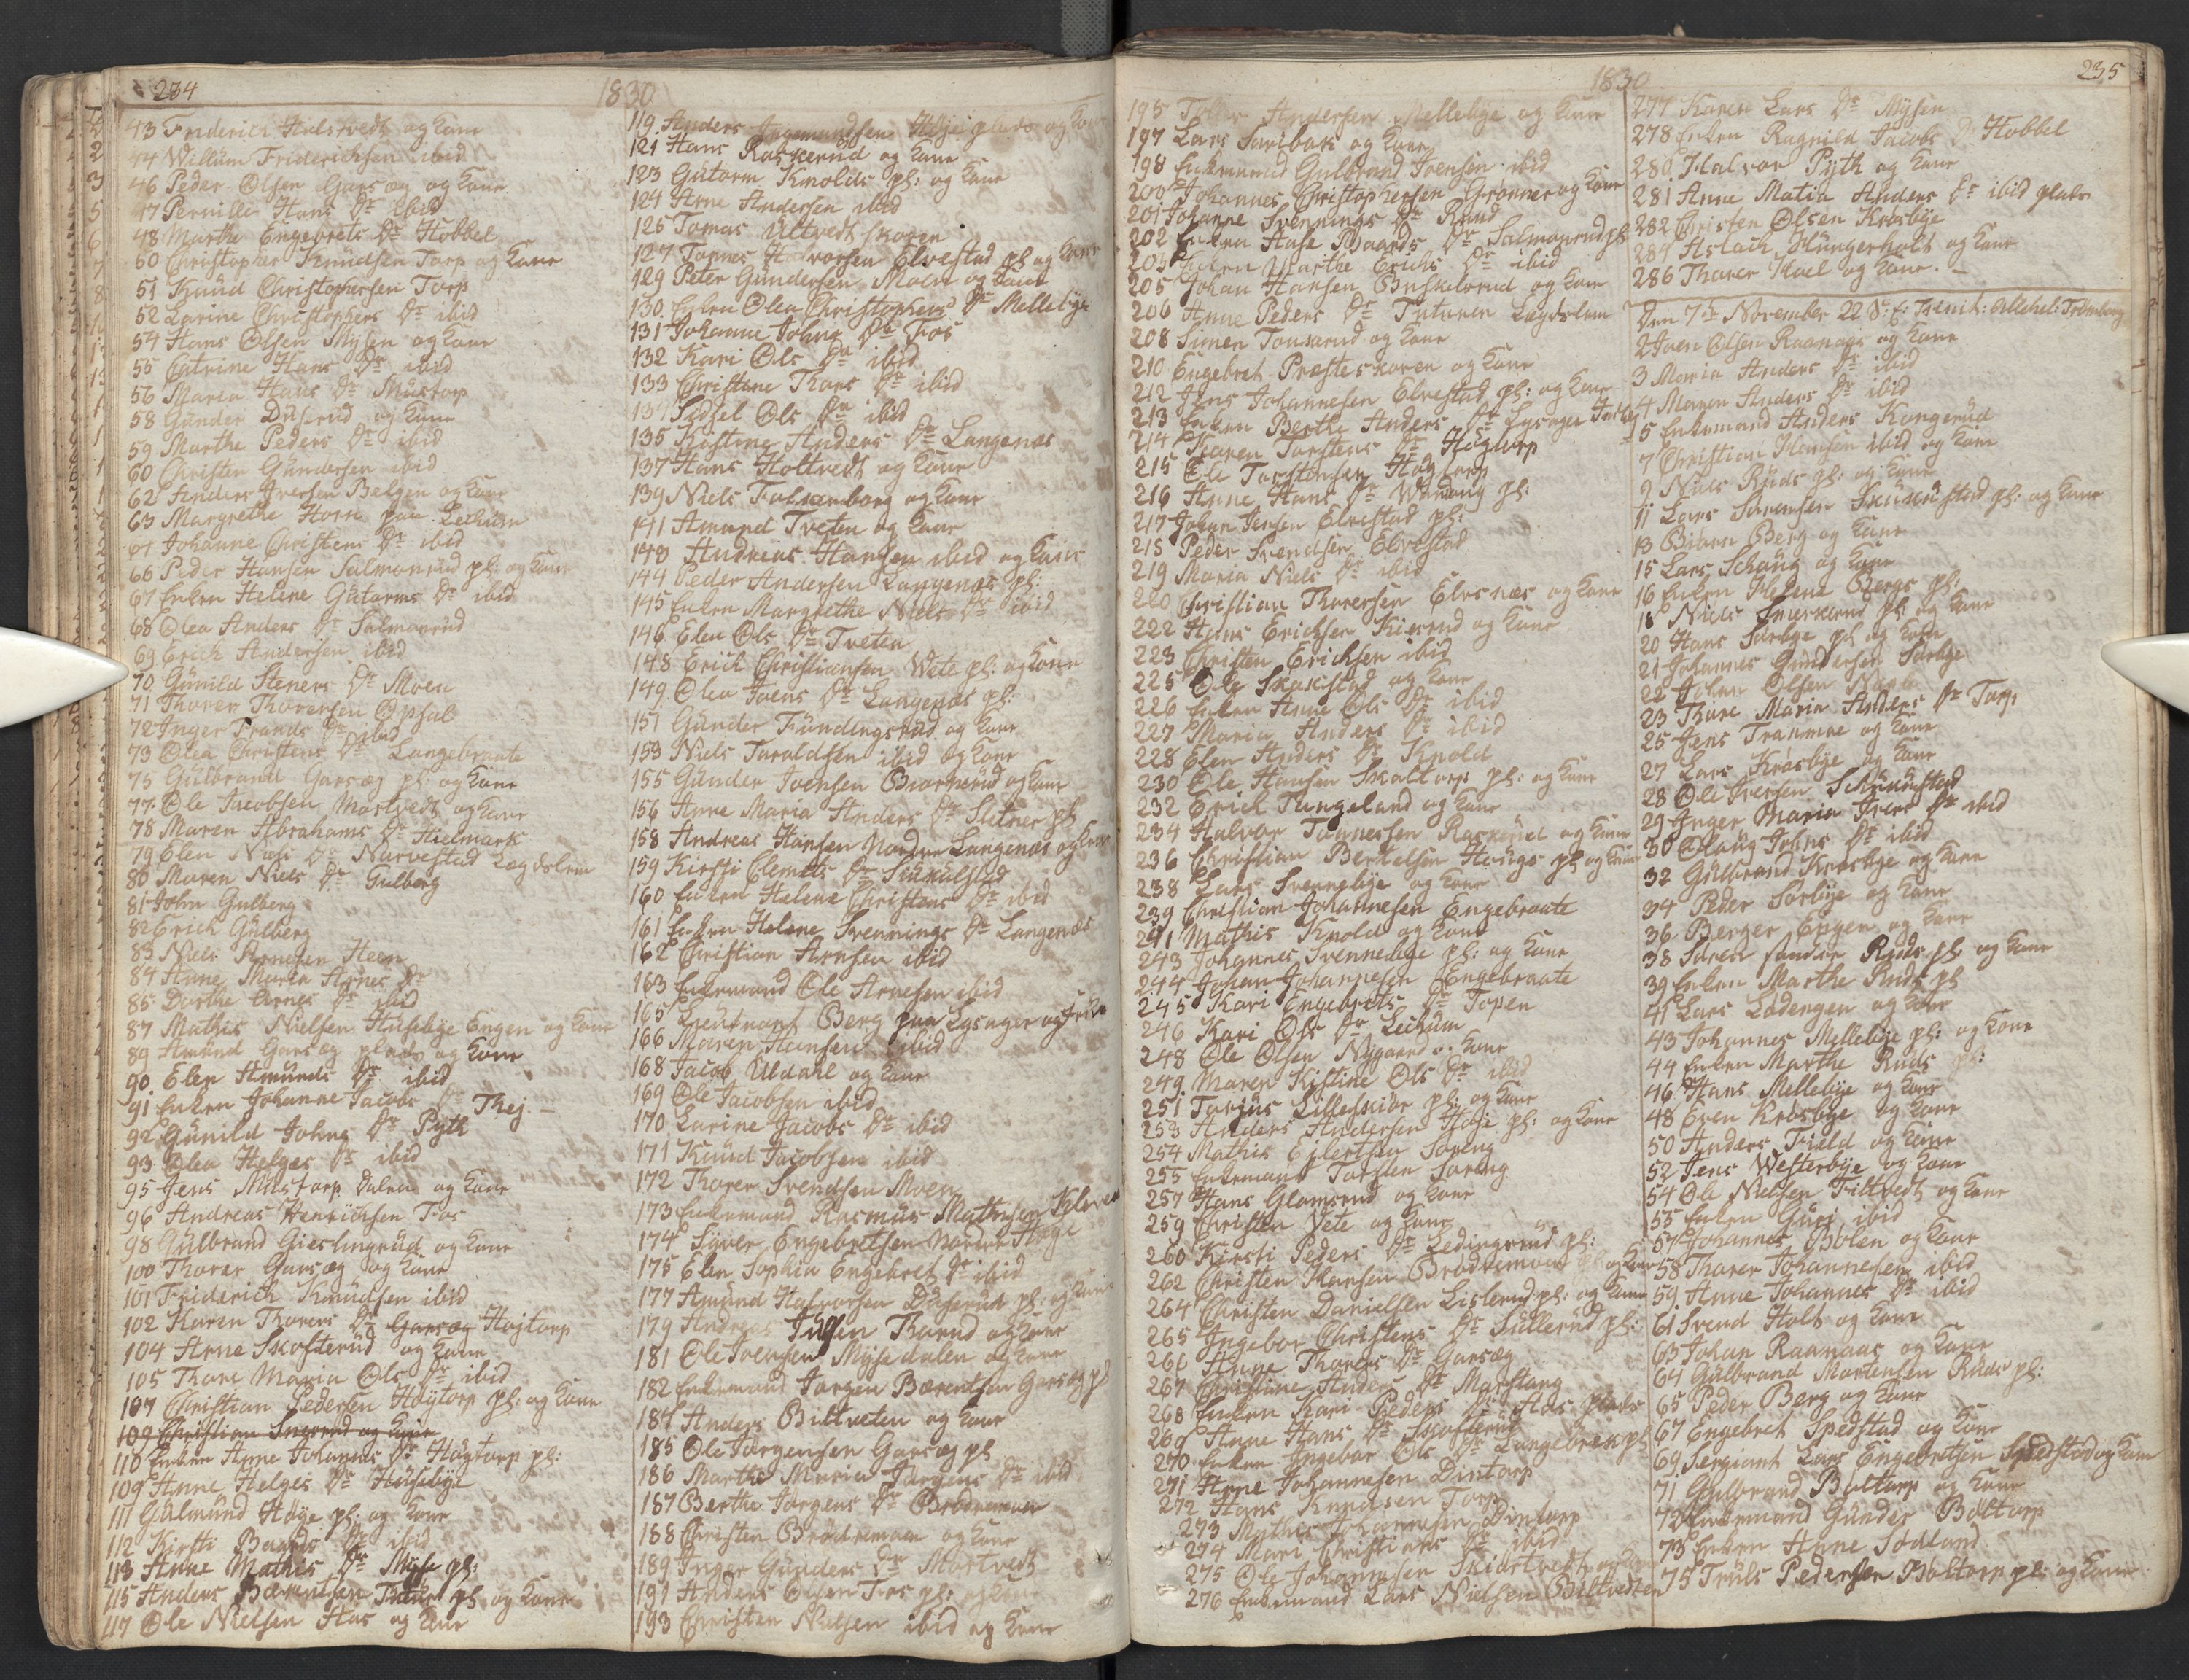 234
1830
43 Friderich Halstvedt og Kone
44 Willum Friderichsen ibid
46 Peder Olsen Garsæg og Kone
47 Pernille Hans Dr ibid
48 Marthe Engebrets Dr Hobbel
50 Christopher Knudsen Torp og Kone
51 Knud Christophersen Torp
52 Larine Christophers Dr ibid
54 Hans Olsen Mysen og Kone
55 Catrine Hans Dr ibid
56 Maria Hans Dr Mustorp
58 Gunder Duserud og Kone
59 Marthe Peders Dr ibid
60 Christen Gundersen ibid
62 Anders Iversen Belgen og Kone
63 Margrethe Horn paa Leikum
64 Johanne Christens Dr ibid
66 Peder Hansen Salmonrud pl: og Kone
67 Enken Helene Gutorms Dr ibid
68 Olea Anders Dr Salmonrud
69 Erich Andersen ibid
70 Gunild Steners Dr Moen
71 Thorer Thorersen Opsal
72 Inger Frands Dr ibid
73 Olea Christens Dr Langebraate
75 Gulbrand Garsæg pl og Kone
77 Ole Jacobsen Mortvedt og Kone
78 Maren Abrahams Dr Hielmark
79 Elen Niels Dr Narvestad Lægdslem
80 Maren Niels Dr Gulberg
81 John Gulberg
82 Erich Gulberg
83 Niels Arnesen Heen
84 Anne Maren Arnes Dr
85 Dorthe Arnes Dr ibid
87 Mathis Nielsen Husebye Engen og Kone
89 Amund Garsæg plads og Kone
90 Elen Amunds Dr ibid
91 Enken Johanne Jacobs Dr Thej. —
92 Gunild Johns Dr Pyth
93 Olea Helges Dr ibid
95 Jens Mustorp Dalen og Kone
96 Andreas Henrichsen Fos
98 Gulbrand Gieslingrud og Kone
100 Thorer Garsæg og Kone
101 Friderich Knudsen ibid
102 Karen Thorers Dr Garsæg Høitorp
104 Arne Skofterud og Kone
105 Thore Maria Ols Dr ibid
107 Christian Pedersen Høytorp pl: og Kone
109 Christian Sngerud og Kone
110 Enken Anne Johannes Dr Høgtorp pl:
109 Anne Helges Dr Husebye
111 Gulmund Høye pl: og Kone
112 Kirsti Baards Dr ibid
113 Anne Mathis Dr Myse pl:
115 Anders Bærentsen pl og Kone
117 Ole Nielsen Aas og Kone
119 Anders Ingemundsen Høje plads og Kone
121 Hans Raskerud og Kone
123 Gutorm Knolds pl: og Kone
124 Arne Andersen ibid
125 Tomas Ultvedt skoven
127 Tomes Halvorsen Elvestad pl og Kone
129 Peter Gundersen Moen og Kone
130 Enken Olea Christophers Dr Mellebye
131 Johanne Johns Dr Fos
132 Kari Ols Dr ibid
133 Christine Thors Dr ibid
134 Sidsel Ols Dr ibid
135 Kistine Anders Dr Langenæs
137 Hans Holtvedt og Kone
139 Niels Falkenborg og Kone
141 Amund Tveten og Kone
143 Andreas Hansen ibid og Kone
144 Peder Andersen Langenæs pl:
145 Enken Margrethe Niels Dr ibid
146 Elen Ols Dr Tveten
148 Erich Christiansen Wete pl: og Kone
149 Olea Joens Dr Langenæs pl:
151 Gunder Fundingsrud og Kone
153 Niels Taraldsen ibid og Kone
155 Gunder Joensen Biørnerud og Kone
156 Anne Maria Anders Dr Slitner pl
158 Andreas Hansen Nordre Langenæs og Kone
159 Kirsti Clemets Dr Skukulstad
160 Enken Helene Christens Dr ibid
161 Enken Helene Svennings Dr Langenæs
162 Christian Arnsen ibid
163 Enkemand Ole Arnesen ibid
165 Lieutnant Berg paa Lysager og Frue
166 Maren Hansen ibid
168 Jacob Uldahl og Kone
169 Ole Jacobsen ibid
170 Larine Jacobs Dr ibid
171 Knud Jacobsen ibid
172 Thorer Svendsen Moen
173 Enkemand Rasmus Mathisen
174 Syver Engebretsen Nordre Høge
175 Elen Sophia Engebret Dr ibid
177 Amund Halvorsen Duserud pl: og Kone
179 Andreas Juul Thorud og Kone
181 Ole Joensen Mysedalen og Kone
182 Enkemand Jørgen Bærentsen Garsæg pl
184 Anders Biltveten og Kone
185 Ole Jørgensen Garsæg pl
186 Marthe Maria Jørgens Dr ibid
187 Berthe Jørgens Dr Brødremoen
188 Christen Brødremoen og Kone
189 Inger Gunders Dr Mortvedt
191 Anders Olsen Fos pl: og Kone
193 Christen Nielsen ibid og Kone
1830
235
195 Andersen Mellebye og Kone
197 Lars Saxibak og Kone
198 Enkemand Gulbrand Joensen ibid
200 Johannes Christophersen Grønner og Kone
201 Johanne Svennings Dr Rund
202 Enken Aase Baards Dr Salmonrud pl
203 Enken Marthe Erichs Dr ibid
205 Johan Hansen Buskelorud og Kone
206 Anne Peders Dr Tutunen Lægdslem
208 Simen Tonserud og Kone
210 Engebret Præsteskoven og Kone
212 Jens Johannesen Elvestad pl: og Kone
213 Enken Berthe Anders Dr Lysager
214 Karen Torstens Dr Høgtorp
215 Ole Torstensen Høgtorp
216 Anne Hans Dr pl:
217 Johan Jensen Elvestad pl:
218 Peder Svendsen Elvestad
219 Maria Niels Dr ibid
220 Christian Thorersen Elvenæs og Kone
222 Hans Erichsen Kierrud og Kone
223 Christen Erichsen ibid
225 Ole Skakstad og Kone
226 Enken Anne Ols Dr ibid
227 Maria Anders Dr ibid
228 Elen Anders Dr Knold
230 Ole Hansen Skaltorp pl: og Kone
232 Erich Tungeland og Kone
234 Halvor Tønnessen Raskerud og Kone
236 Christian Bertelsen Hougs pl og Kone
238 Lars Svennebye og Kone
239 Christian Johannesen Engebraate
241 Mathis Knold og Kone
243 Johannes Svennebye pl: og Kone
244 Johan Johannesen Engebraate
245 Kari Engebrets Dr Topen
246 Kari Ols Dr Leikum
248 Ole Olsen Nygaard o. Kone
249 Maren Kistine Ols Dr ibid
251 Torjus Lilleskiør pl: og Kone
253 Anders Andersen Høje pl: og Kone
254 Mathis Eilertsen Soreng
255 Enkemand Torsten Soreng
257 Hans Glamsrud og Kone
259 Christen Vete og Kone
260 Kirsti Peders Dr Ledingsrud pl:
262 Christen Hansen Brødremoen pl og Kone
264 Christen Danielsen Lislerud pl: og Kone
265 Ingebor Christens Dr Sullerud pl:
266 Anne Thorers Dr Garsæg
267 Christine Anders Dr Morstang
268 Enken Kari Peders Dr Aas plads
269 Anne Hans Dr Skofterud
270 Enken Ingebor Ols Dr Langebrek pl
271 Arne Johannesen Dintorp
272 Hans Knudsen Torp
273 Mathis Johannesen Dintorp
274 Mari Christians Dr ibid
275 Ole Johannesen Skiørtvedt og Kone
276 Enkemand Lars Nielsen Biltvedten
277 Karen Lars Dr Mysen
278 Enken Ragnild Jacobs Dr Hobbel
280 Halvor Pyth og Kone
281 Anne Matia Anders Dr ibid plads
282 Christen Olsen Krosbye
284 Aslach Hungerholt og Kone
286 Thorer Kael og Kone. —
Den 7de November 22 S: e: Trenit: Trømborg
2 Joen Olsen Raanaas og Kone
3 Maria Anders Dr ibid
4 Maren Anders Dr ibid
5 Enkemand Anders Kongerud
7 Christian Hansen ibid og Kone
9 Niels Ruds pl: og Kone
11 Lars Sørensen Skukustad pl: og Kone
13 Biørn Berg og Kone
15 Lars Schaug og Kone
16 Enken Helene Bergs pl:
18 Niels Snerkerud pl og Kone
20 Hans Sørbye pl og Kone
21 Johannes Gundersen Sørbye
22 John Olsen
23 Thore Maria Anders Dr Torp
25 Jens Tranmoe og Kone
27 Lars Krosbye og Kone
28 Ole Iversen Schukustad
29 Inger Maria Ivers Dr ibid
30 Olaug Johns Dr ibid
32 Gulbrand Krosbye og Kone
34 Peder Sørbye og Kone
36 Berger Engen og Kone
38 Søren søndre Ruds pl og Kone
39 Enken Marthe Ruds pl
41 Lars Lødengen og Kone
43 Johannes Mellebye pl: og Kone
44 Enken Marthe Ruds pl:
46 Hans Mellebye og Kone
48 Even Krosbye og Kone
50 Anders Field og Kone
52 Jens Westerbye og Kone
54 Ole Nielsen Filtvedt og Kone
55 Enken Guri ibid
57 Johannes Bolen og Kone
58 Thorer Johannesen ibid
59 Anne Johannes Dr ibid
61 Svend Holt og Kone
63 Johan Raanaas og Kone
64 Gulbrand Mortensen Ruds pl:
65 Peder Berg og Kone
67 Engebret Spedstad og Kone
69 Sergiant Lars Engebretsen Spedstad og Kone
71 Gulbrand Boltorp og Kone
72 Enkemand Gunder Boltorp
73 Enken Anne Sødland
75 Truls Pedersen Boltorp pl: og Kone